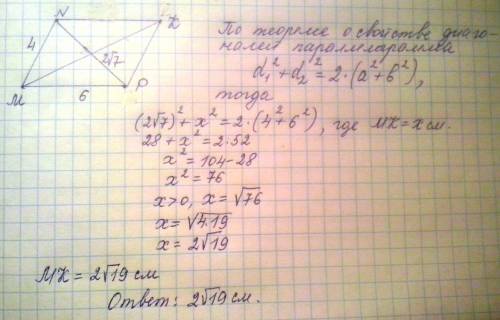 N K
4
2√7
M 6 P
По теореме о свойстве диаго-
налей параллелограмма
d₁² + d₂² = 2·(a² + б²),
тогда
(2√7)² + x² = 2·(4² + 6²), где МК = x см.
28 + x² = 2·52
x² = 104 - 28
x² = 76
x>0, x = √76
x = √4·19
x = 2√19
МК = 2√19 см
Ответ: 2√19 см.